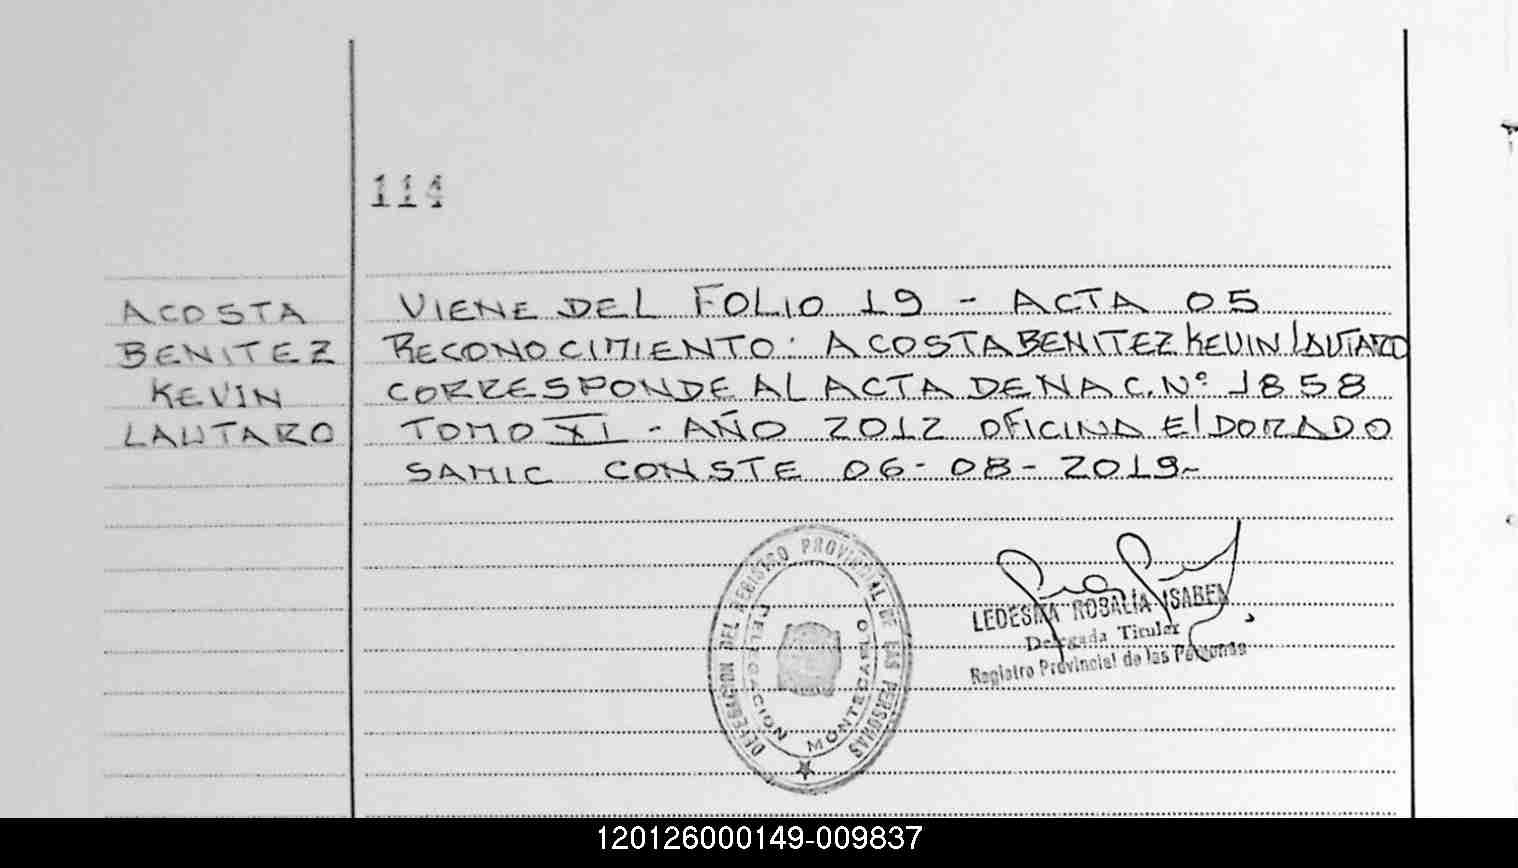 114
ACOSTA
BENITEZ
KEVIN
LAUTARO
VIENE DEL FOLIO 19 - ACTA 05
RECONOCIMIENTO: ACOSTA BENITEZ KEVIN LAUTARO
CORRESPONDE AL ACTA DE NAC. Nº 1858
TOMO XI - AÑO 2012 OFICINA ElDORADO
SAMIC CONSTE 06-08-2019-
DEL REGISTRO PROVINCIAL DE LAS PERSONAS
DELEGACION MONTECARLO
LEDESMA ROSALÍA ISABEL
Delegada Titular
Registro Provincial de las Personas
120126000149-009837